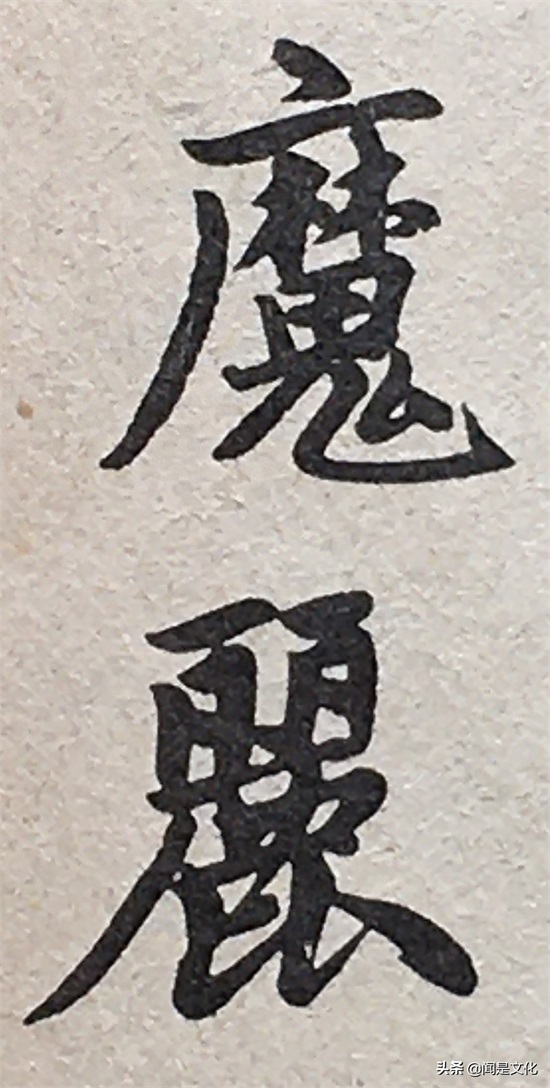 魔
麗
头条 @闻是文化